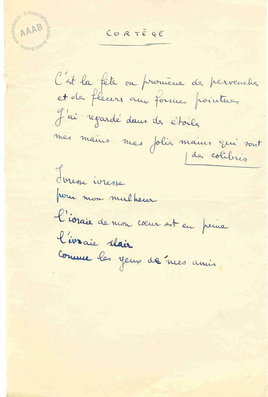 CORTÈGE
AAAB
C'est la fête on promène des pervenches
et des fleurs aux formes pointues
J'ai regardé dans des étoiles
mes mains mes jolies mains qui sont
des colibris
Ivresse ivresse
pour mon malheur
L'ivraie de mon cœur est en peine
L'ivraie
comme les yeux de mes amis